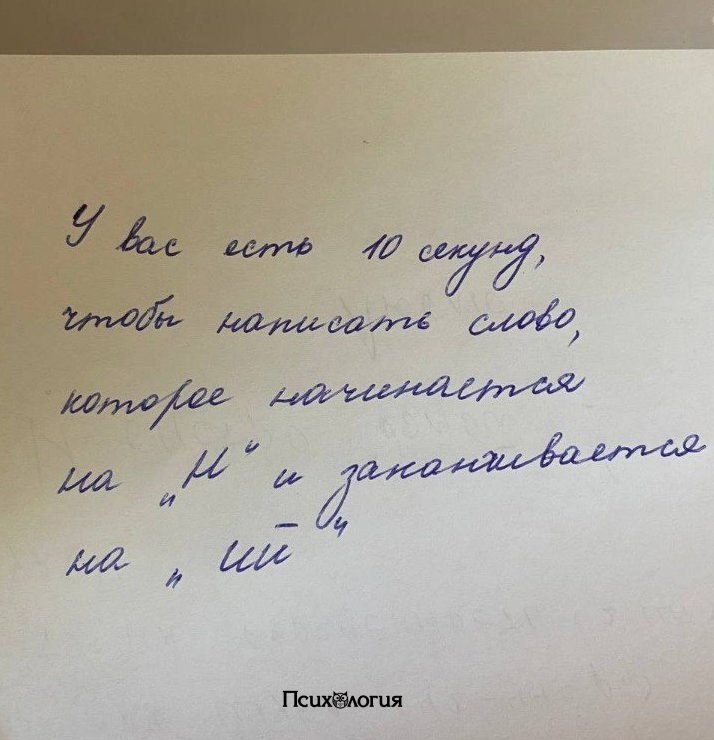 У вас есть 10 секунд,
чтобы написать слово,
которое начинается
на „Н“ и заканчивается
на „ий“
Психология